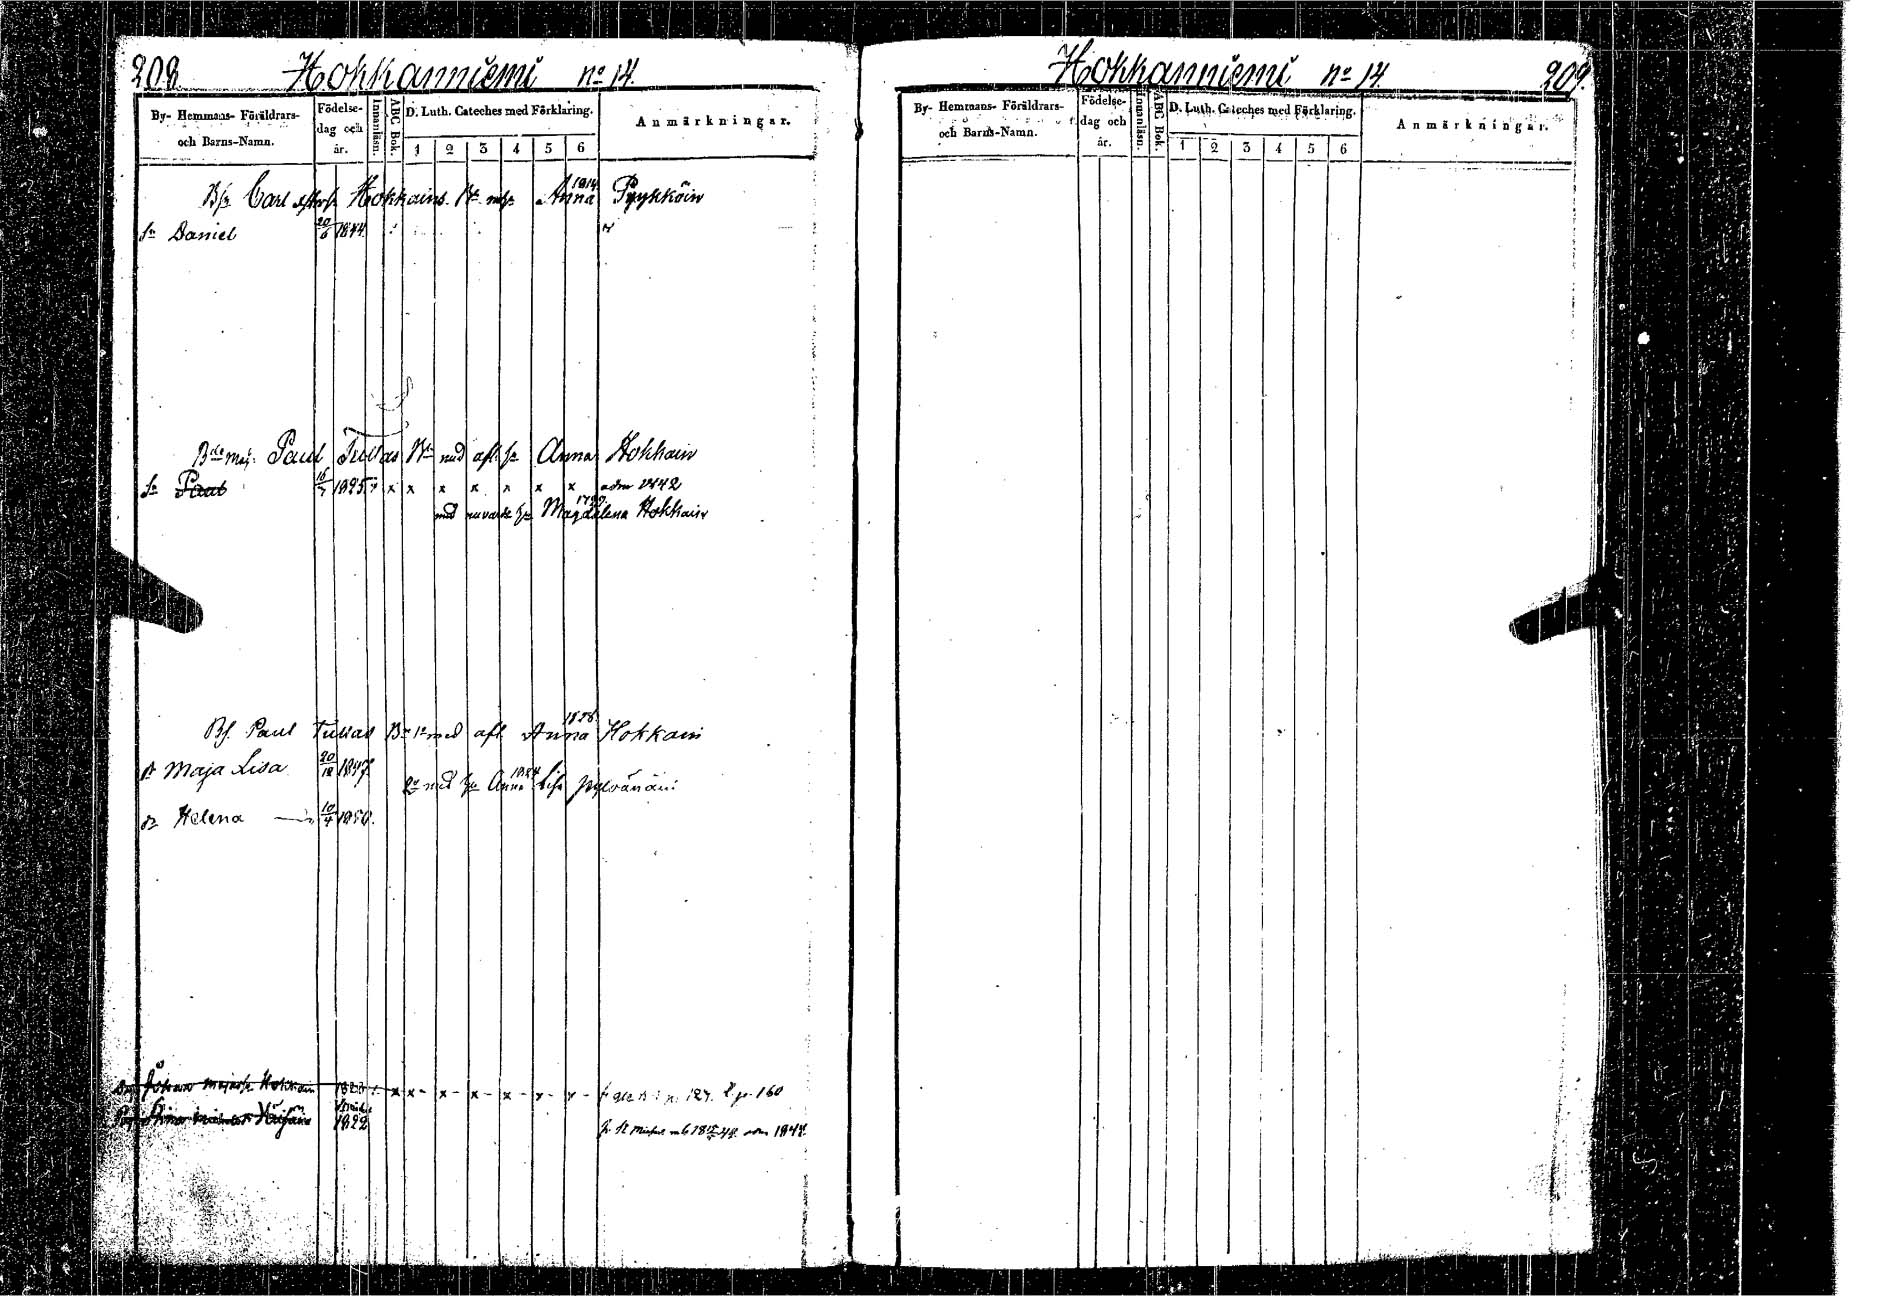 208. Hokkanniemi no 14.
By- Hemmans- Föräldrars- och Barns-Namn.
Födelse- dag och år.
Innanläsn.
ABC Bok.
D. Luth. Cateches med Förklaring.
1 2 3 4 5 6
Anmärkningar.
1814.
Carl Hokkains Anna Pyykköin
Sn Daniel 20/6 1844.
Paul Tuvas med afl. hu Anna Hokkain
Sn Paul 16/7 1825. x x x x x x x adm 1842
med nuvarde hu Magdalena Hokkain
Bf. Paul Tuvas 1o med afl. Anna Hokkain
dr Maja Lisa 20/12 1847.
2o med hu Anna Lisa
dr Helena 10/4 1850.
Johan Hokkain 1823 x x - x - x - x - x - x - 160
1822
Hokkanniemi no 14. 209.
By- Hemmans- Föräldrars- och Barns-Namn.
Födelse- dag och år.
Innanläsn.
ABC Bok.
D. Luth. Cateches med Förklaring.
1 2 3 4 5 6
Anmärkningar.